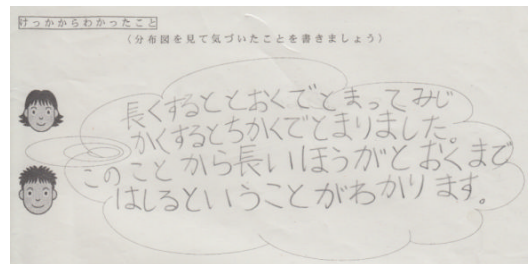 けっかからわかったこと
(分布図を見て気づいたことを書きましょう)
長くするととおくでとまってみじ
かくするとちかくでとまりました。
このことから長いほうがとおくまで
はしるということがわかります。